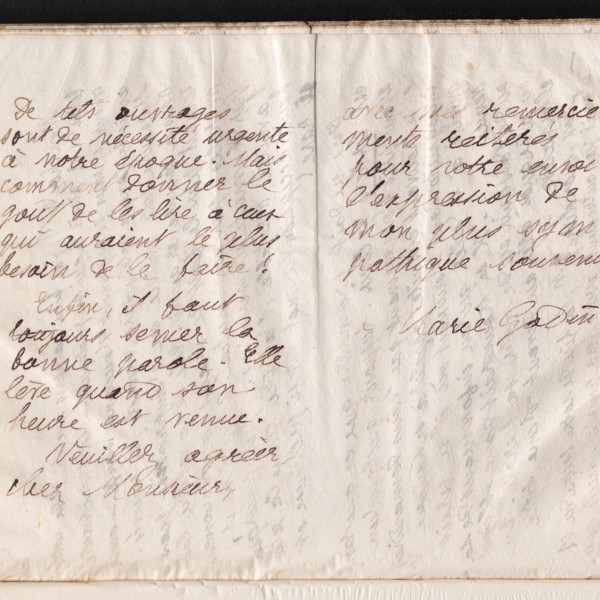 De tels ouvrages
sont de nécessité urgente
à notre époque. Mais
comment donner le
gout de les lire à ceux
qui auraient le plus
besoin de le faire !
Enfin, il faut
toujours semer la
bonne parole. Elle
lève quand son
heure est venue.
Veuillez agréer,
cher Monsieur,
avec mes remercie
ments réitérés
pour votre envoi
l'expression de
mon plus sym
pathique souvenir
Marie Godin